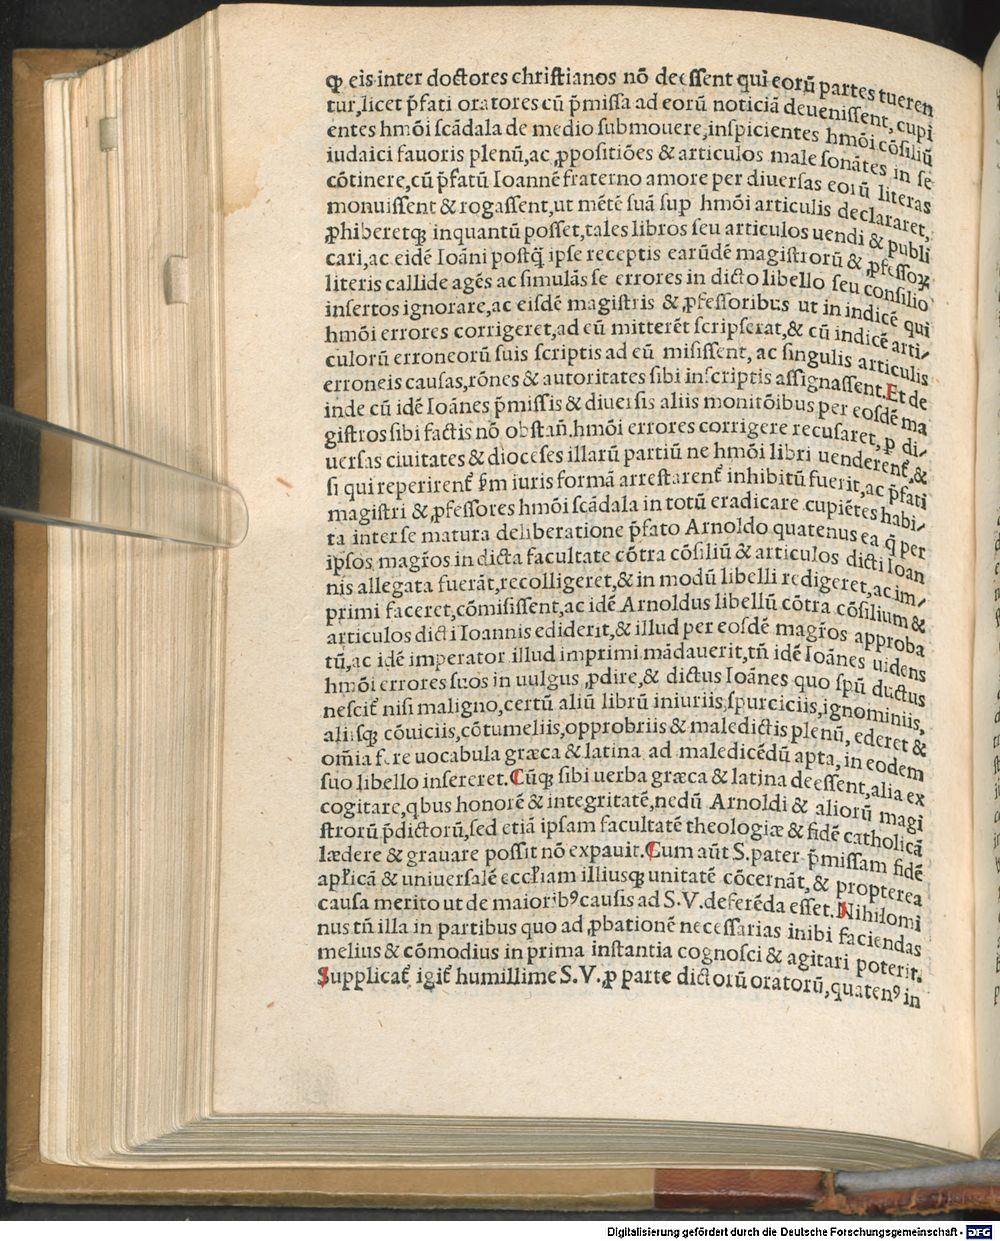 ꝙ eis inter doctores christianos nõ deessent qui eorũ partes tueren
tur, licet p̃fati oratores cũ p̃missa ad eorũ noticiã deuenissent, cupi
entes hmõi scãdala de medio submouere, inspicientes hmõi cõsiliũ
iudaici fauoris plenũ, ac ꝓpositiões & articulos male sonãtes in se
cõtinere, cũ p̃fatũ Ioannẽ fraterno amore per diuersas eorũ literas
monuissent & rogassent, ut mẽtẽ suã sup hmõi articulis declararet,
ꝓhiberetqꝫ inquantũ posset, tales libros seu articulos uendi & publi
cari, ac eidẽ Ioãni postq̃ ipse receptis earũdẽ magistrorũ & ꝓfessoꝝ
literis callide agẽs ac simulãs se errores in dicto libello seu consilio
insertos ignorare, ac eisdẽ magistris & ꝓfessoribus ut in indicẽ qui
hmõi errores corrigeret, ad eũ mitterẽt scripserat, & cũ indicẽ arti⸗
culorũ erroneorũ suis scriptis ad eũ misissent, ac singulis articulis
erroneis causas, rõnes & autoritates sibi inscriptis assignassent. Et de
inde cũ idẽ Ioãnes p̃missis & diuersis aliis monitõibus per eosdẽ ma
gistros sibi factis nõ obstañ. hmõi errores corrigere recusaret, ꝑ di⸗
uersas ciuitates & dioceses illarũ partiũ ne hmõi libri uenderent᷒, &
si qui reperirent᷒ s̃m iuris formã arrestarent᷒ inhibitũ fuerit, ac p̃fati
magistri & ꝓfessores hmõi scãdala in totũ eradicare cupiẽtes habi⸗
ta inter se matura deliberatione p̃fato Arnoldo quatenus ea q̃ per
ip̃sos magr̃os in dicta facultate cõtra cõsiliũ & articulos dicti Ioan
nis allegata fuerãt, recolligeret, & in modũ libelli redigeret, ac im⸗
primi faceret, cõmisissent, ac idẽ Arnoldus libellũ cõtra cõsilium &
articulos dicti Ioannis ediderit, & illud per eosdẽ magr̃os approba
tũ, ac idẽ imperator illud imprimi mãdauerit, tñ idẽ Ioãnes uidens
hmõi errores suos in uulgus ꝓdire, & dictus Ioãnes quo spũ ductus
nescit᷒ nisi maligno, certũ aliũ librũ iniuriis, spurciciis, ignominiis,
aliisqꝫ cõuiciis, cõtumeliis, opprobriis & maledictis plenũ, ederet &
om̃ia fere uocabula græca & latina ad maledicẽdũ apta, in eodem
suo libello insereret. Cũqꝫ sibi uerba græca & latina deessent, alia ex
cogitare, qbus honorẽ & integritatẽ, nedũ Arnoldi & aliorũ magi
strorũ p̃dictorũ, sed etiã ipsam facultatẽ theologiæ & fidẽ catholicã
lædere & grauare possit nõ expauit. Cum aũt S. pater p̃missam fidẽ
aplicã & uniuersalẽ eccl̃iam illiusqꝫ unitatẽ cõcernãt, & propterea
causa merito ut de maioribꝰ causis ad S. V. deferẽda esset. Nihilomi
nus tñ illa in partibus quo ad ꝓbationẽ necessarias inibi faciendas
melius & cõmodius in prima instantia cognosci & agitari poterit.
Supplicat᷒ igit᷒ humillime S. V. ꝓ parte dictorũ oratorũ, quatenꝰ in
Digitalisierung gefördert durch die Deutsche Forschungsgemeinschaft - DFG